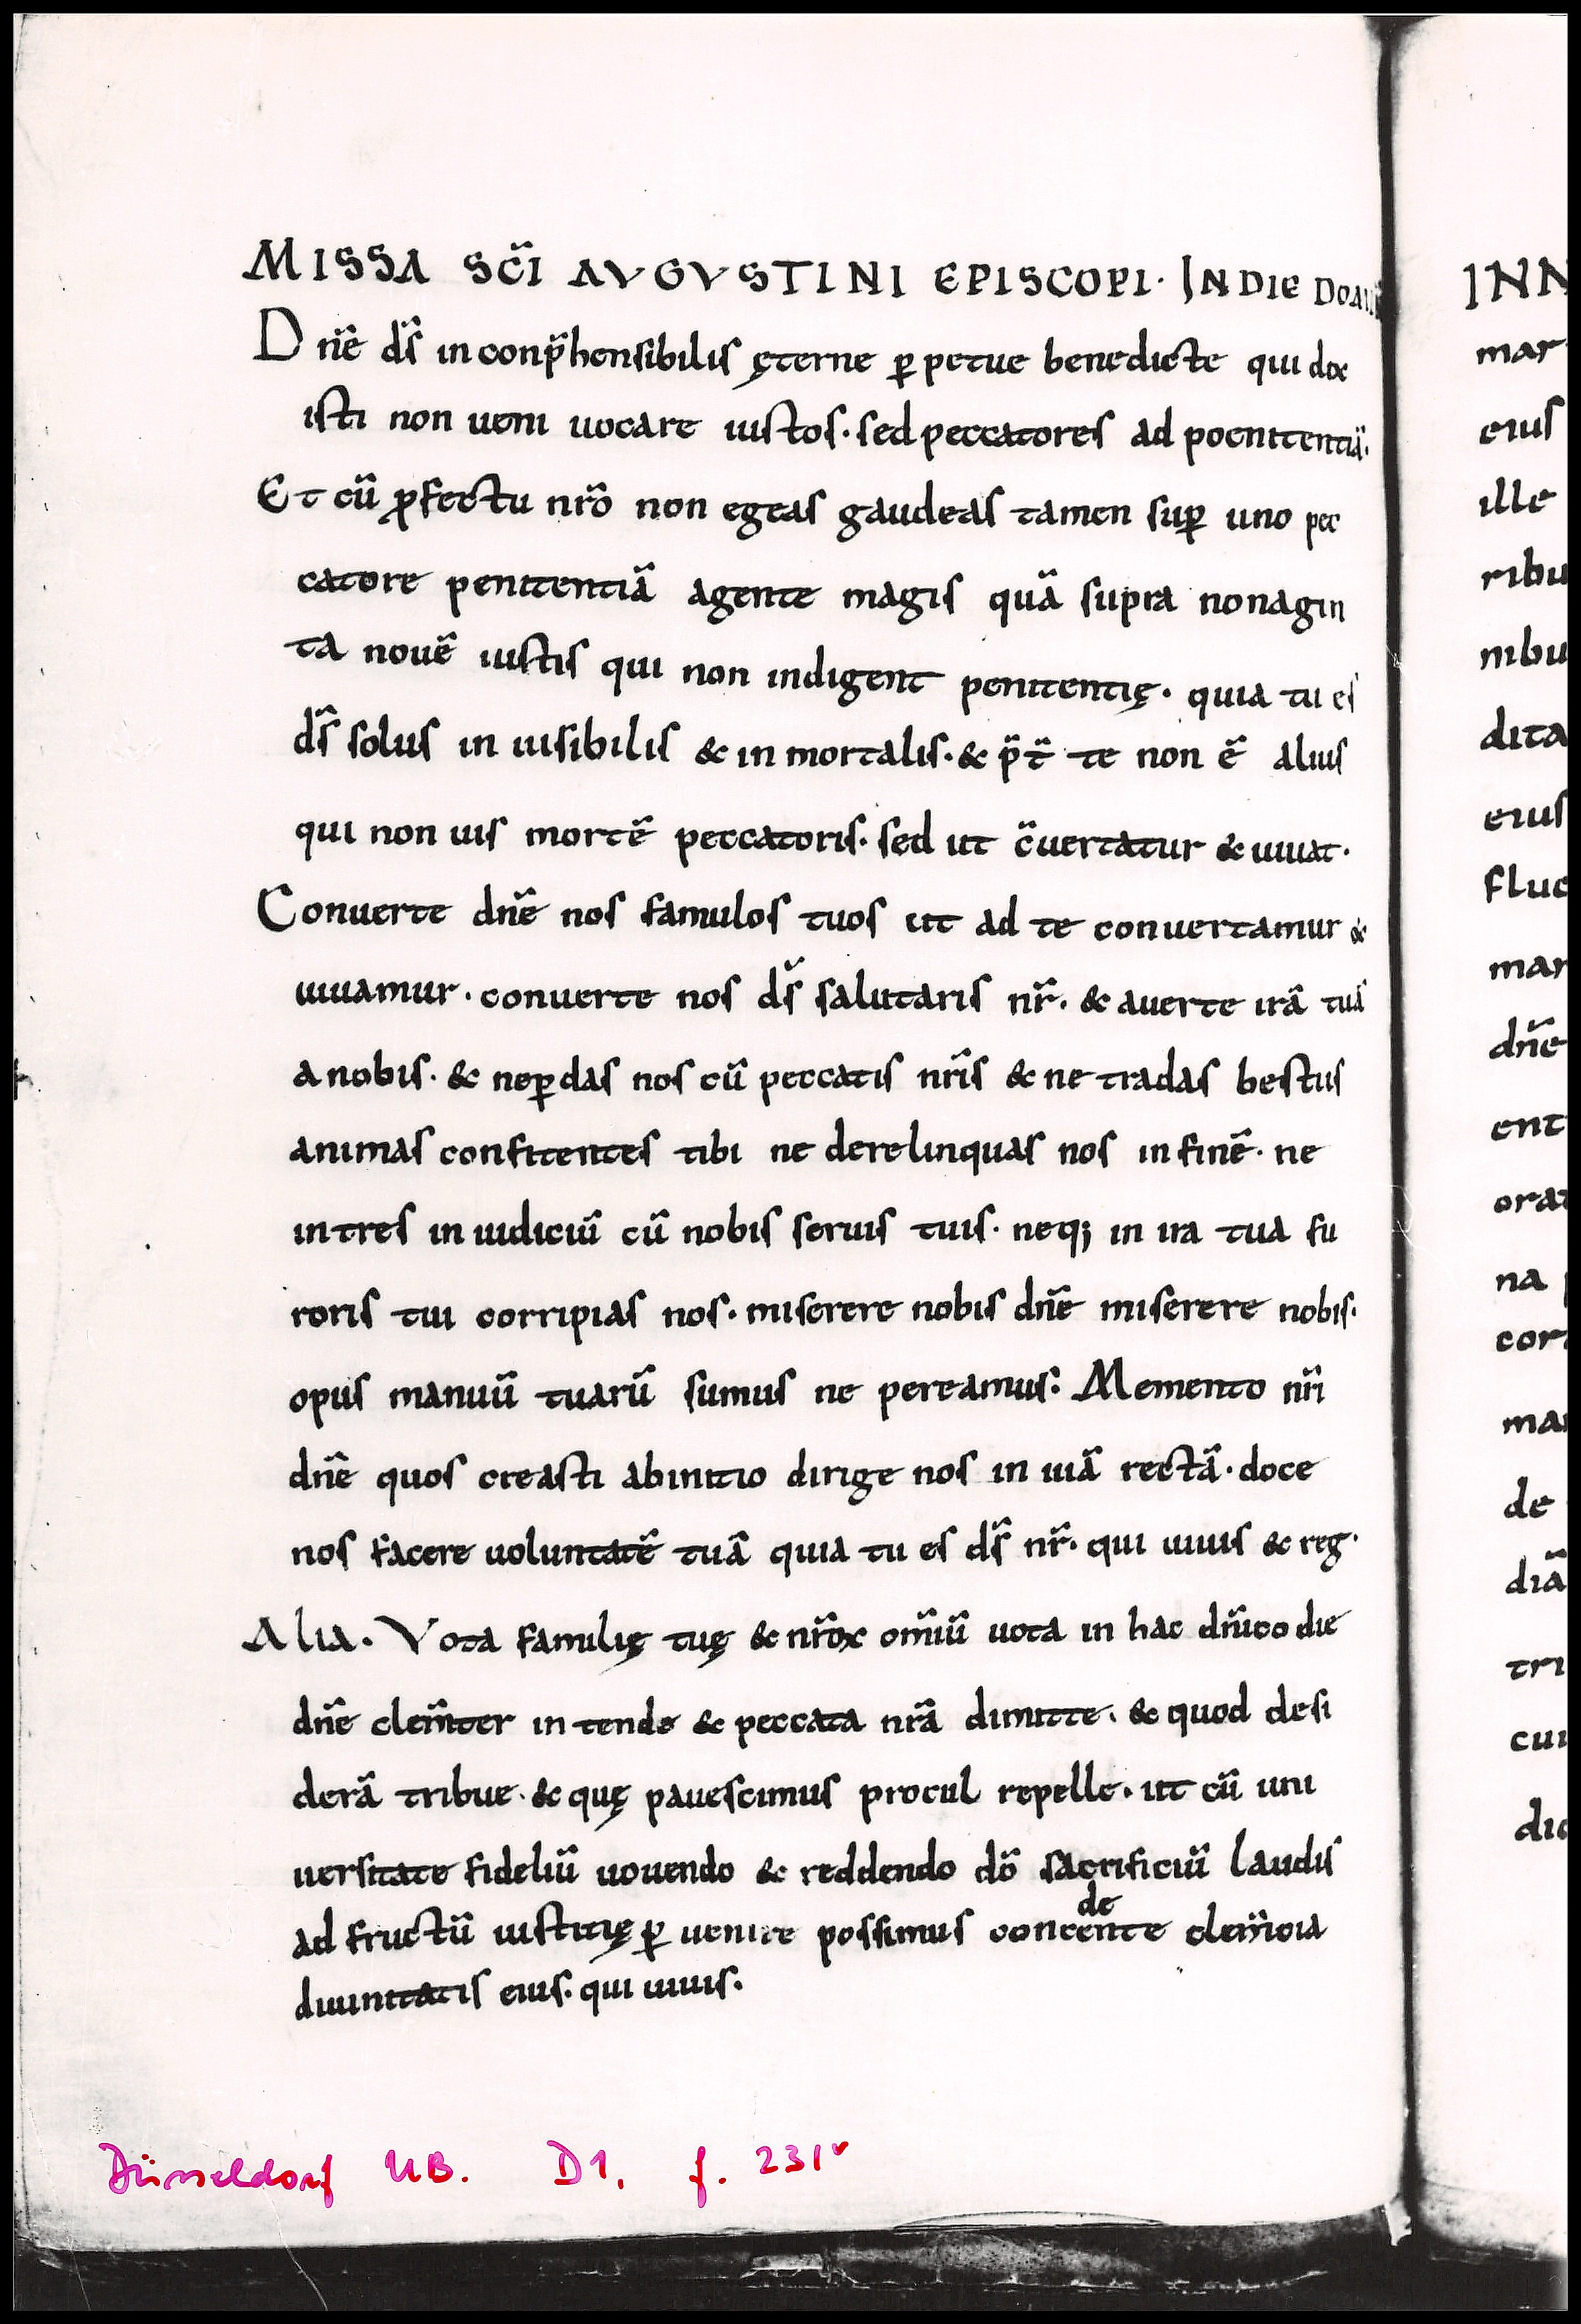 MISSA SC̄I AVGVSTINI EPISCOPI· IN DIE
Dn̄e ds̄ inconp̄hensibilis ęterne ꝑpetue benedicte qui dix
isti non ueni uocare iustos· sed peccatores ad poenitentiā·
Et cū ꝓfectu nr̄o non egeas gaudeas tamen suꝑ uno pec
catore penitentiā agente magis quā supra nonagin
ta nouē iustis qui non indigent penitentię· quia tu es
ds̄ solus inuisibilis & inmortalis· & p̄t̄ te non ē alius
qui non uis mortē peccatoris· sed ut c̄uertatur & uiuat·
Conuerte dn̄e nos famulos tuos ut ad te conuertamur &
uiuamur· conuerte nos ds̄ salutaris nr̄· & auerte irā tuā
a nobis· & neꝑdas nos cū peccatis nr̄is & ne tradas bestiis
animas confitentes tibi ne derelinquas nos in finē· ne
intres in iudiciū cū nobis seruis tuis· neq; in ira tua fu
roris tui corripias nos· miserere nobis dn̄e miserere nobis·
opus manuū tuarū sumus ne pereamus: Memento nr̄i
dn̄e quos creasti abinitio dirige nos in uiā rectā· doce
nos facere uoluntatē tuā quia tu es ds̄ nr̄· qui uiuis & reg·
Alia· Vota familię tuę & nr̄oꝝ om̄iū uota in hac dn̄ico die
dn̄e clem̄ter intende & peccata nr̄a dimitte· & quod desi
derā tribue· & quę pauescimus procul repelle· ut cū uni
uersitate fideliū uouendo & reddendo dō sacrificiū laudis
de
ad fructū iustitię ꝑuenire possimus concente clem̄cia
diuinitatis eius· qui uiuis·
INN
mar
eius
ille
ribu
nibu
dita
eius
fluc
mar
dn̄e
ent
orat
na
cor
mar
de
diā
tri
cui
dic
Düsseldorf UB. D1, f. 231v